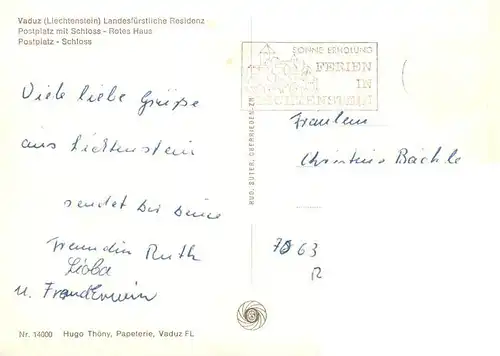 Vaduz (Liechtenstein) Landesfürstliche Residenz
Postplatz mit Schloss - Rotes Haus
Postplatz - Schloss
Viele liebe Grüße
aus Lichtenstein
sendet Dir Deine
Freundin Ruth
Lioba
u.
SONNE ERHOLUNG
FERIEN
IN
LIECHTENSTEIN
RUD. SUTER, OBERRIEDEN-ZH
Fräulein
Christine Bächle
63
Nr. 14000 Hugo Thöny, Papeterie, Vaduz FL